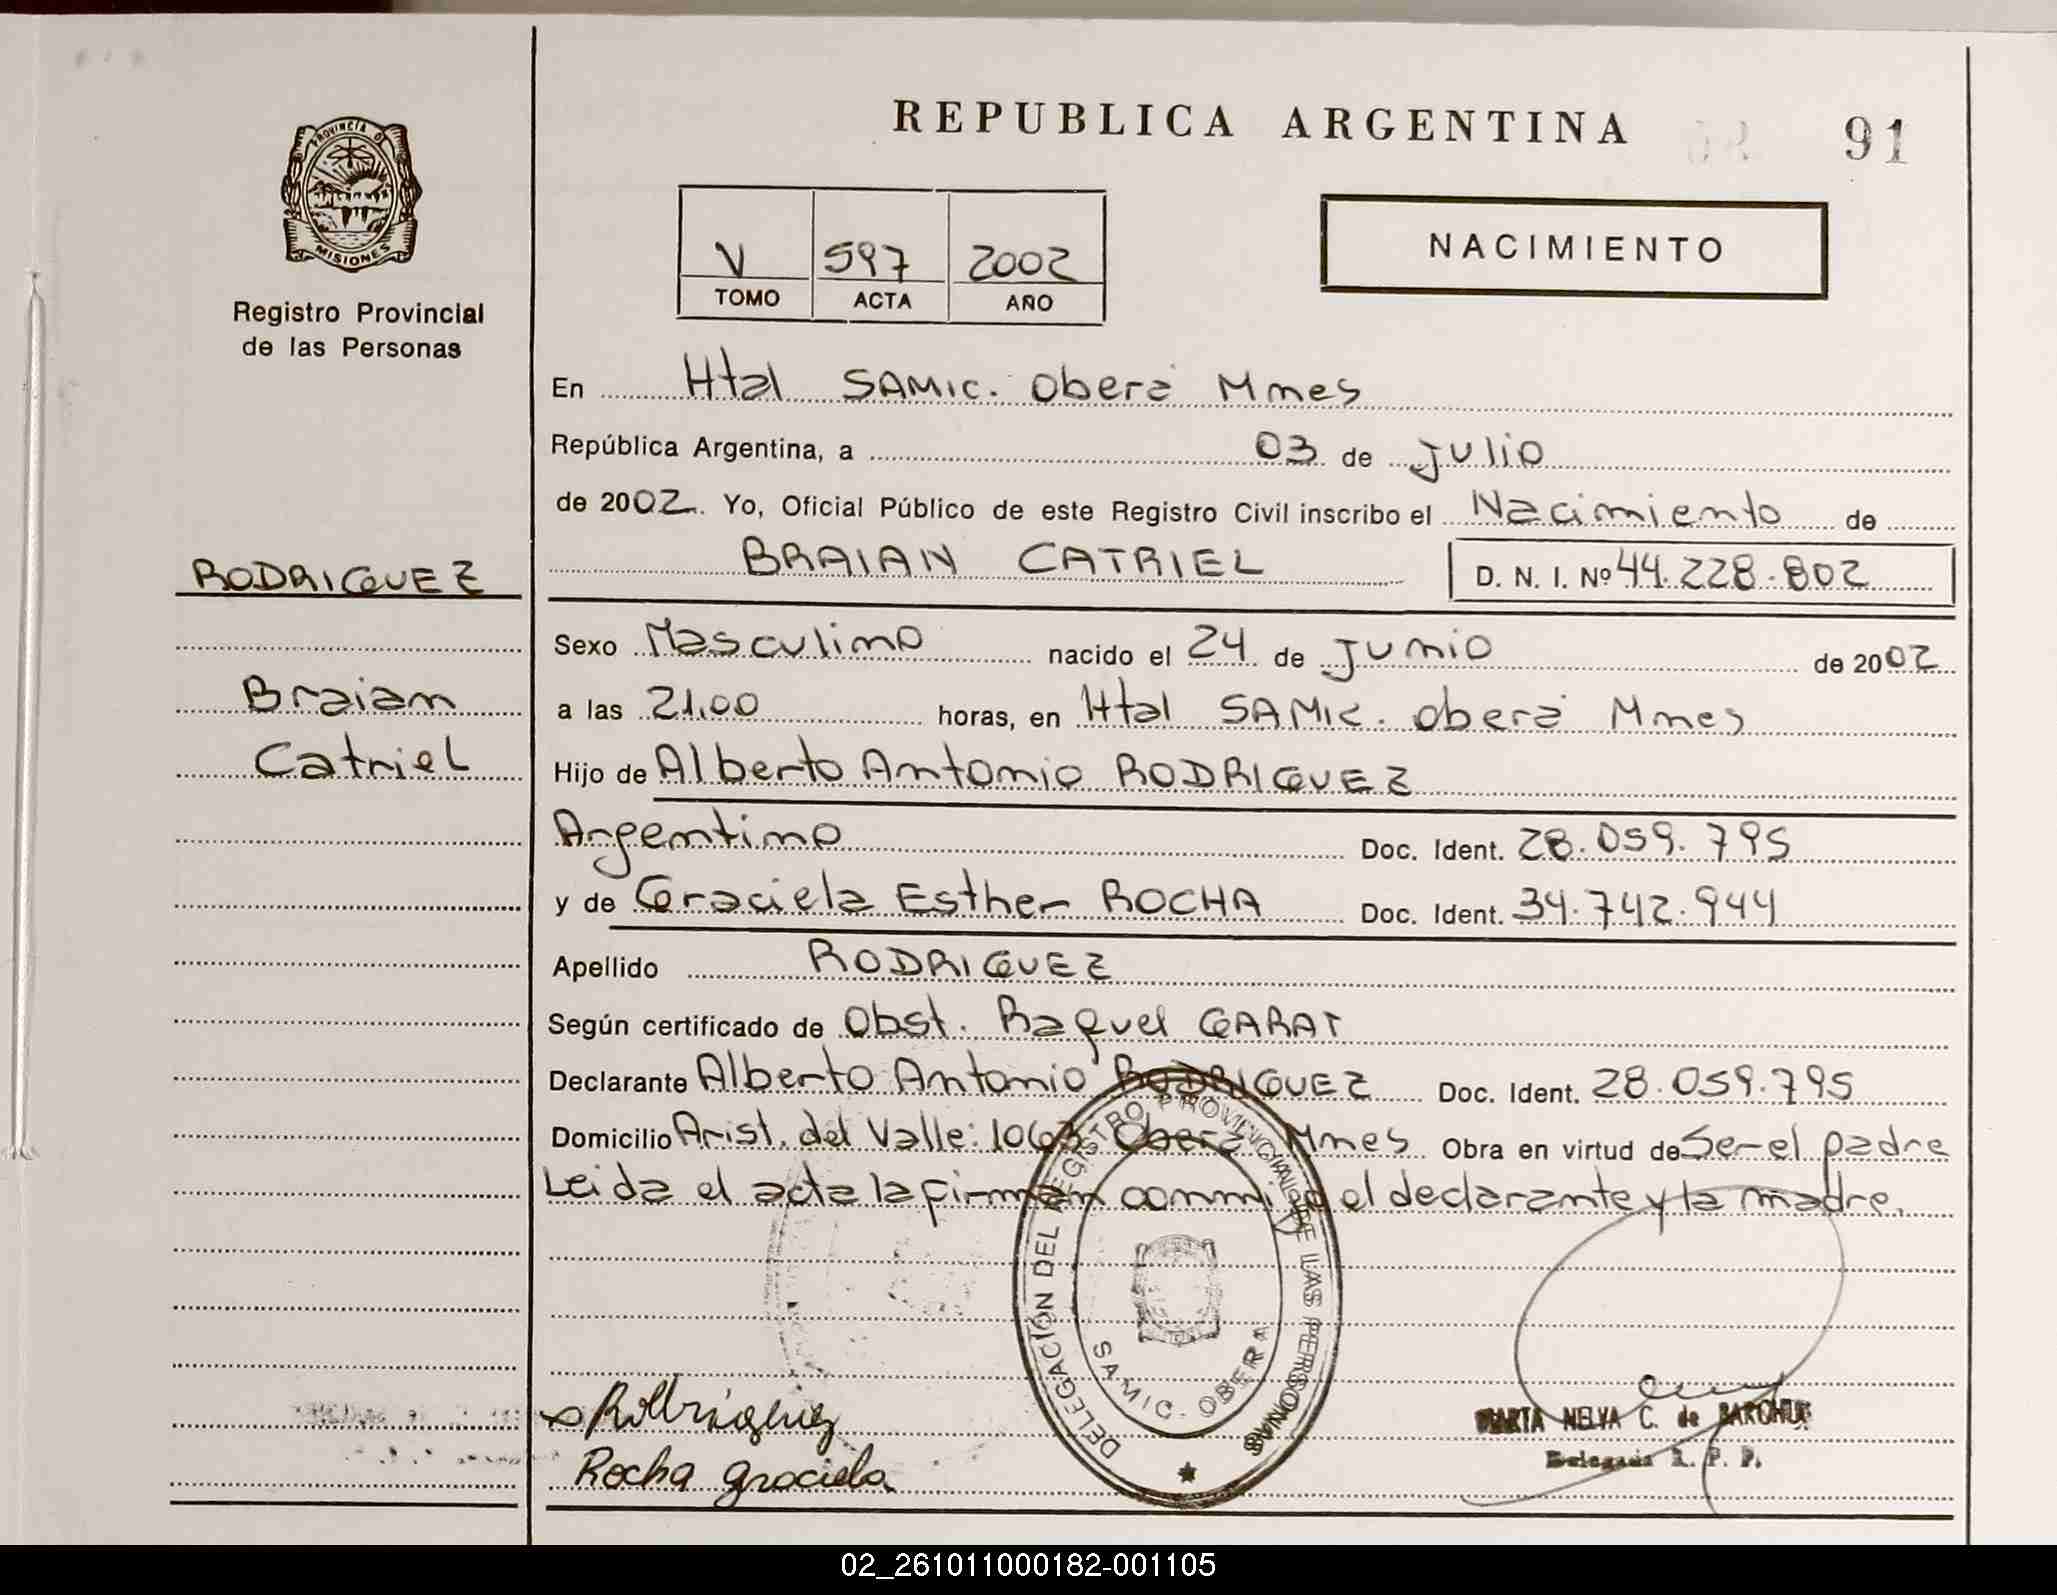 REPUBLICA ARGENTINA
91
PROVINCIA DE
MISIONES
Registro Provincial
de las Personas
V 597 2002
TOMO ACTA AÑO
NACIMIENTO
En Htal SAMIC. Oberá Mnes
República Argentina, a 03 de Julio
de 2002. Yo, Oficial Público de este Registro Civil inscribo el Nacimiento de
BRAIAN CATRIEL D. N. I. Nº 44.228.802
RODRIGUEZ
Braian
Catriel
Sexo Masculino nacido el 24 de Junio de 2002
a las 21,00 horas, en Htal SAMIC. Oberá Mnes
Hijo de Alberto Antonio RODRIGUEZ
Argentino Doc. Ident. 28.059.795
y de Graciela Esther ROCHA Doc. Ident. 34.742.944
Apellido RODRIGUEZ
Según certificado de Obst. Raquel GARAT
Declarante Alberto Antonio RODRIGUEZ Doc. Ident. 28.059.795
Domicilio Arist. del Valle: 1063 Oberá Mnes Obra en virtud de Ser el padre
Leida el acta la firman conmigo el declarante y la madre.
DELEGACIÓN DEL REGISTRO PROVINCIAL DE LAS PERSONAS
SAMIC. OBERA
Rodriguez
Rocha graciela
MARTA NELVA C. de
Delegada R. P. P.
02_261011000182-001105